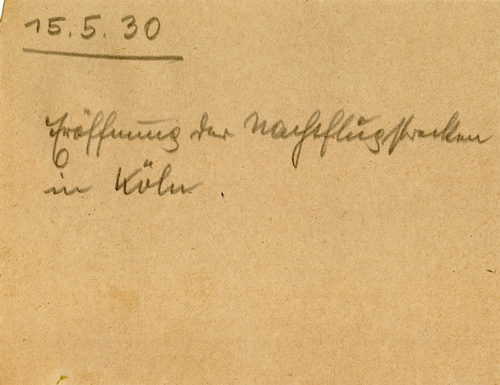 15.5.30
Eröffnung der Nachtflugstrecken
in Köln.